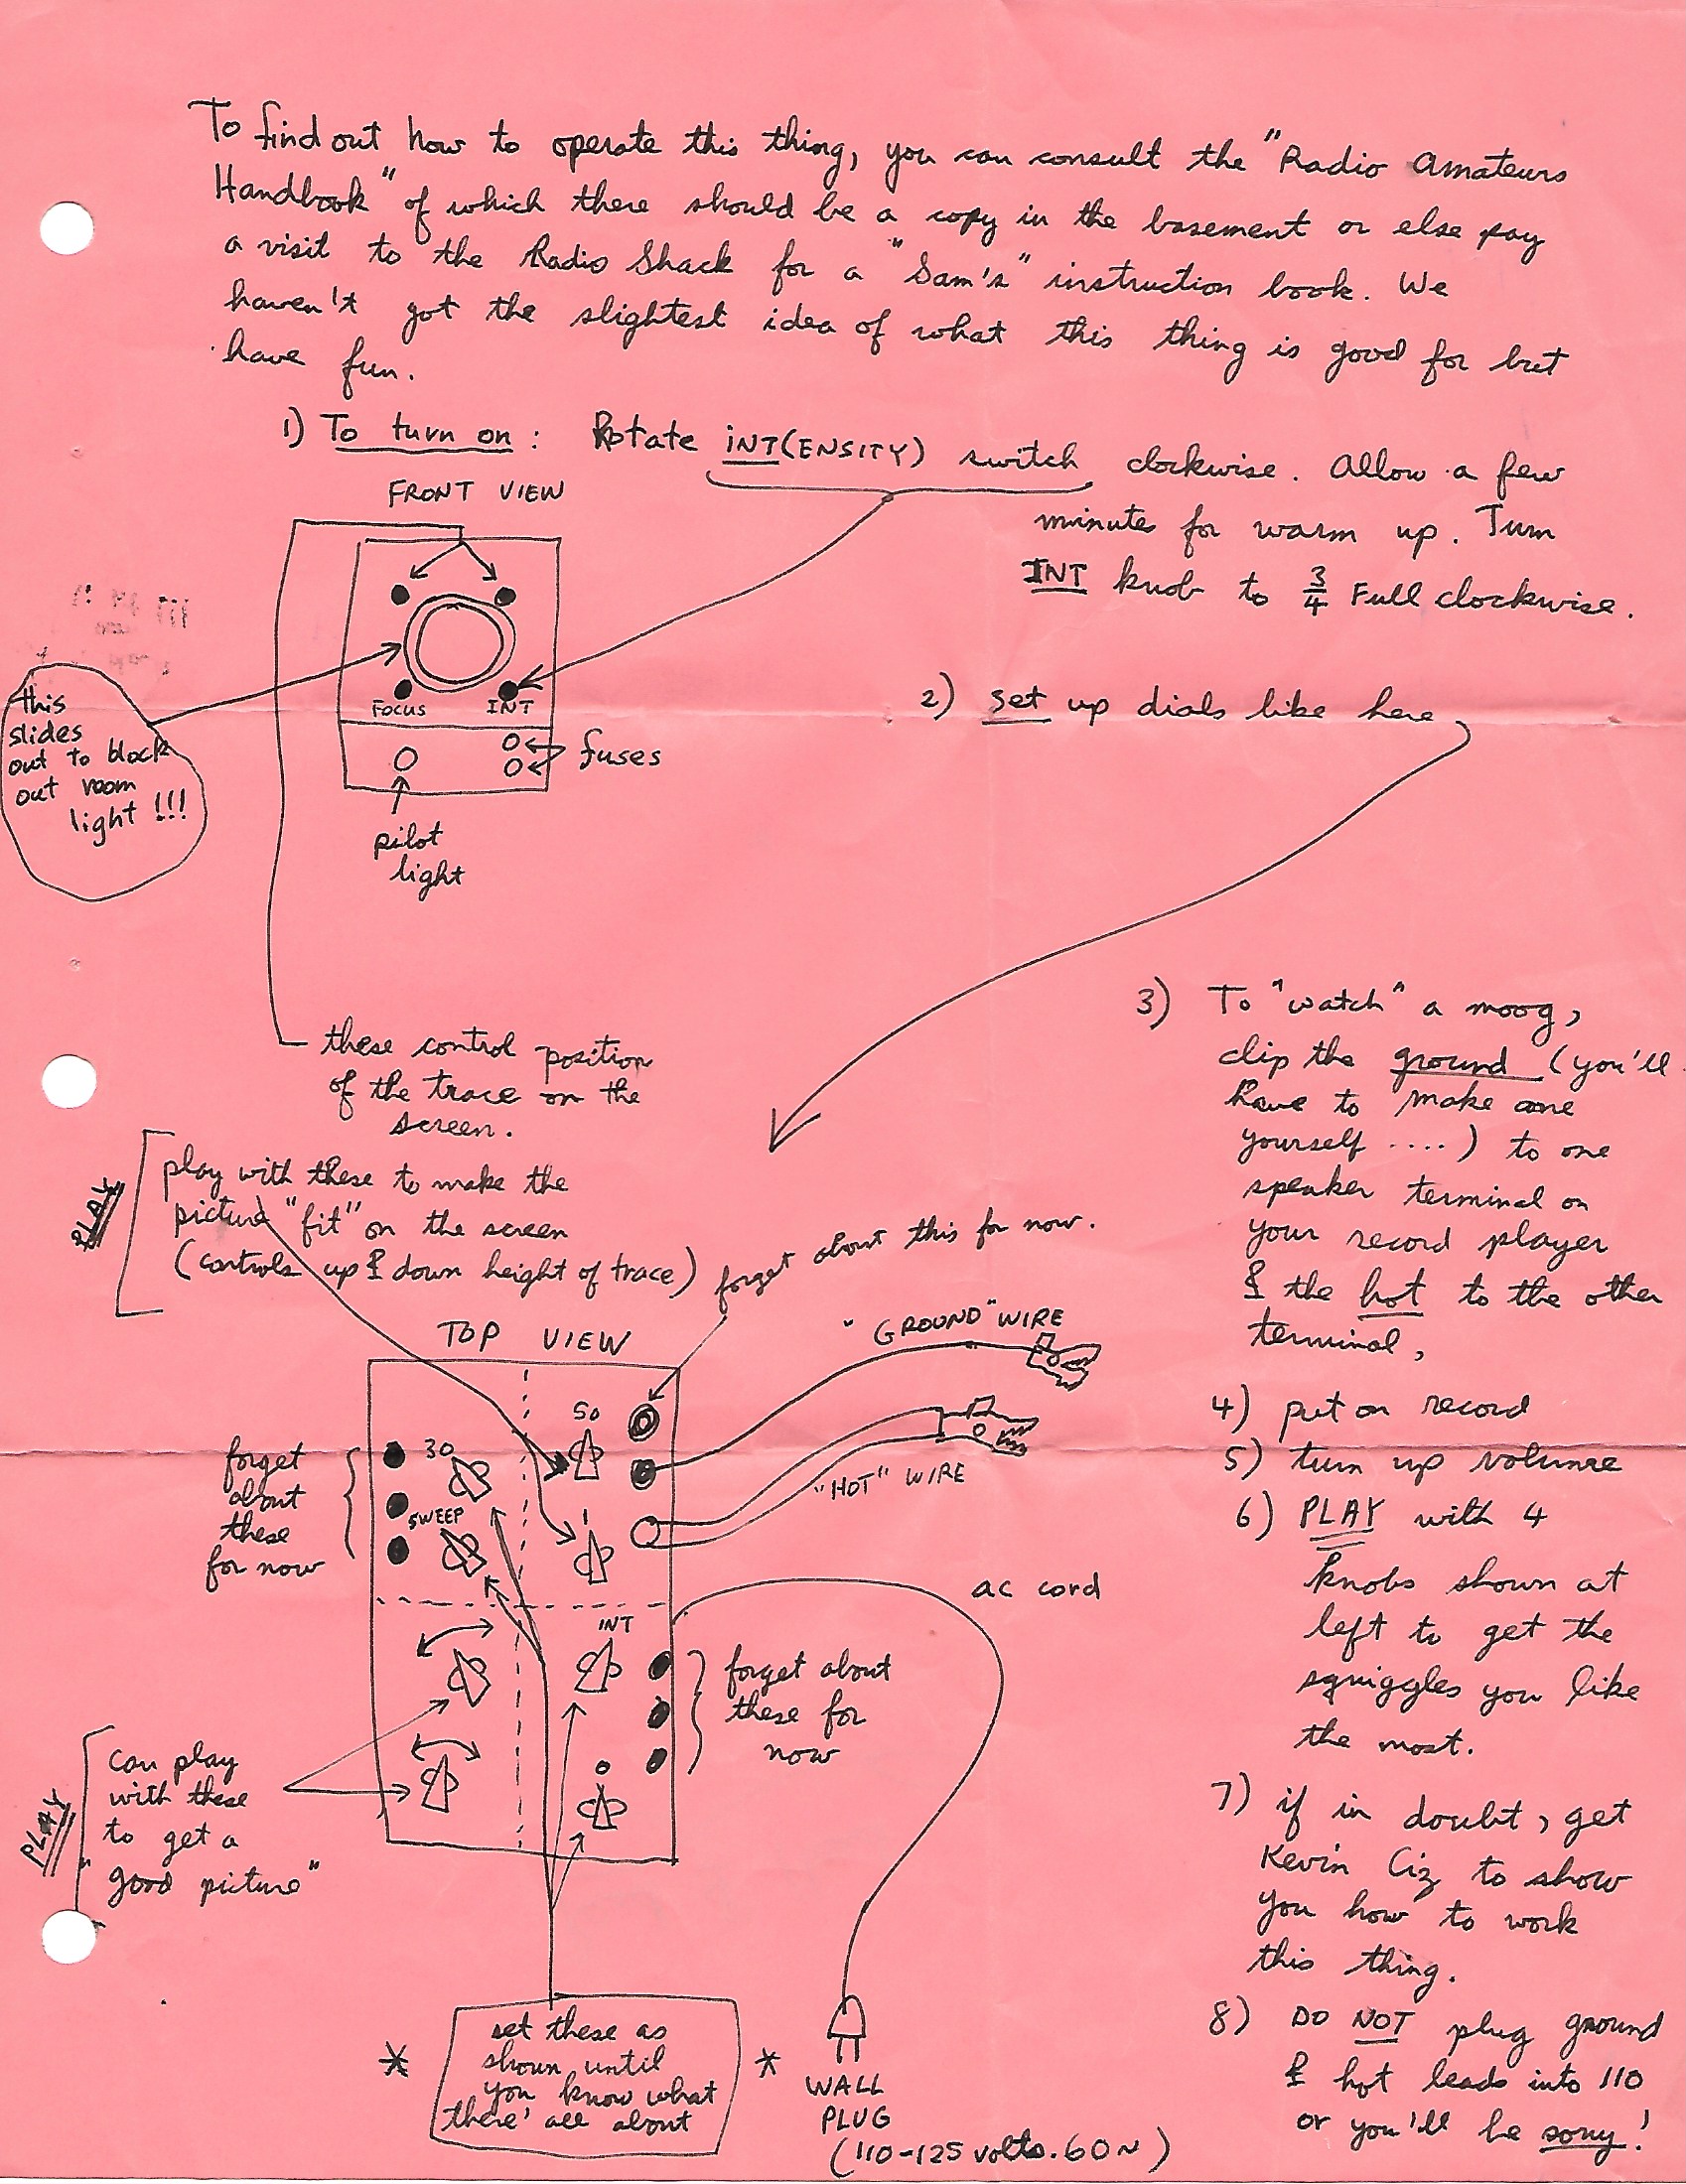 To find out how to operate this thing, you can consult the "Radio Amateurs
Handbook" of which there should be a copy in the basement or else pay
a visit to the Radio Shack for a "Sam's" instruction book. We
haven't got the slightest idea of what this thing is good for but
have fun.
1) To turn on: Rotate INT(ENSITY) switch clockwise. Allow a few
minutes for warm up. Turn
INT knob to 3/4 Full clockwise.
FRONT VIEW
FOCUS INT
fuses
pilot
light
this
slides
out to block
out room
light!!!
2) set up dials like here
these control position
of the trace on the
screen.
PLAY
play with these to make the
picture "fit" on the screen
(controls up & down height of trace)
forget about this for now.
TOP VIEW
"GROUND" WIRE
"HOT" WIRE
50
30
SWEEP
1
INT
0
forget
about
these
for now
ac cord
forget about
these for
now
PLAY
can play
with these
to get a
"good picture"
* set these as
shown until
you know what
there' all about *
WALL
PLUG
(110-125 volts. 60~)
3) To "watch" a moog,
clip the ground (you'll
have to make one
yourself ....) to one
speaker terminal on
your record player
& the hot to the other
terminal,
4) put on record
5) turn up volume
6) PLAY with 4
knobs shown at
left to get the
squiggles you like
the most.
7) if in doubt, get
Kevin Ciz to show
you how to work
this thing.
8) DO NOT plug ground
& hot leads into 110
or you'll be sorry!